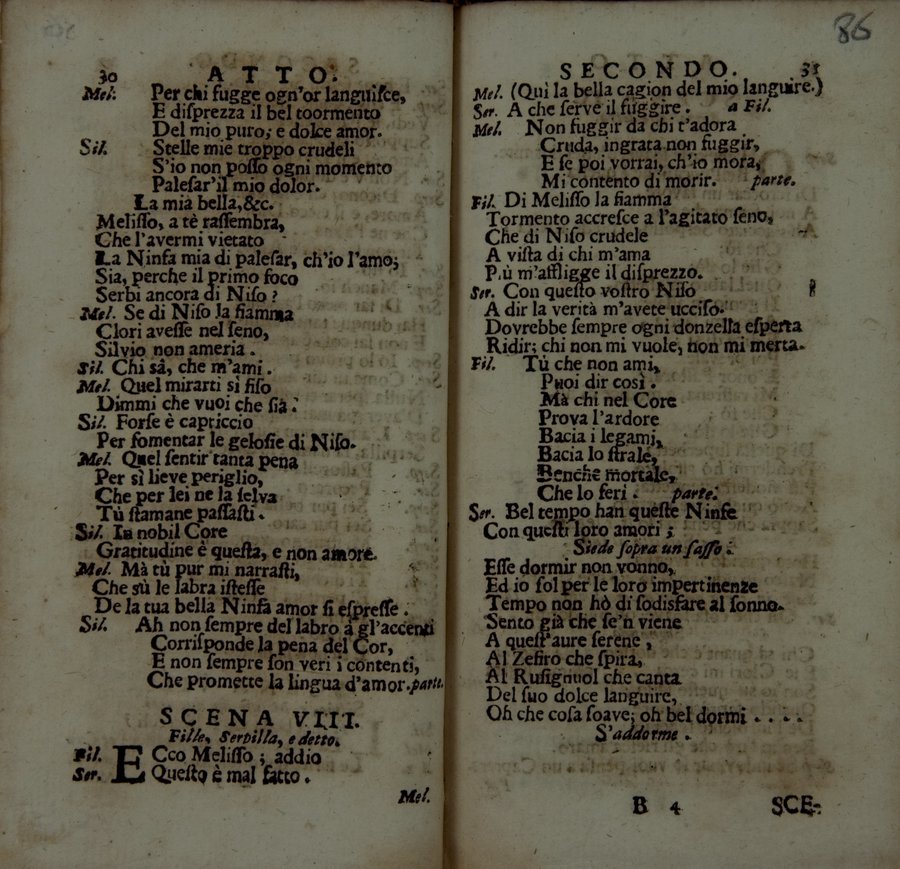 30 ATTO.
Mel. Per chi fugge ogn'or languisce,
E disprezza il bel toormento
Del mio puro; e dolce amor.
Sil. Stelle mie troppo crudeli
S'io non posso ogni momento
Palesar'il mio dolor.
La mia bella,&c.
Melisso, a tè rassembra,
Che l'avermi vietato
La Ninfa mia di palesar, ch'io l'amo;
Sia, perche il primo foco
Serbi ancora di Niso?
Mel. Se di Niso la fiamma
Clori avesse nel seno,
Silvio non ameria.
Sil. Chi sà, che m'ami.
Mel. Quel mirarti si fiso
Dimmi che vuoi che sia.
Sil. Forse è capriccio
Per fomentar le gelosie di Niso.
Mel. Quel sentir tanta pena
Per sì lieve periglio,
Che per lei ne la selva
Tù stamane passasti.
Sil. In nobil Core
Gratitudine è questa, e non amore.
Mel. Mà tù pur mi narrasti,
Che sù le labra istesse
De la tua bella Ninfa amor si espresse.
Sil. Ah non sempre del labro á gl'accenti
Corrisponde la pena del Cor,
E non sempre son veri i contenti,
Che promette la lingua d'amor. parte.
SCENA VIII.
Fille, Serpilla, e detto.
Fil. ECco Melisso; addio
Ser. Questo è mal fatto.
Mel.
86
SECONDO. 31
Mel. (Quì la bella cagion del mio languire.)
Ser. A che serve il fuggire. a Fil.
Mel. Non fuggir da chi t'adora
Cruda, ingrata non fuggir,
E se poi vorrai, ch'io mora,
Mi contento di morir. parte.
Fil. Di Melisso la fiamma
Tormento accresce a l'agitato seno,
Che di Niso crudele
A vista di chi m'ama
Più m'affligge il disprezzo.
Ser. Con questo vostro Niso
A dir la verità m'avete ucciso.
Dovrebbe sempre ogni donzella esperta
Ridir; chi non mi vuole, non mi merta.
Fil. Tù che non ami,
Puoi dir così.
Mà chi nel Core
Prova l'ardore
Bacia i legami,
Bacia lo strale,
Benche mortale,
Che lo ferì. parte.
Ser. Bel tempo han queste Ninfe
Con questi loro amori;
Siede sopra un sasso.
Esse dormir non vonno,
Ed io sol per le loro impertinenze
Tempo non hò di sodisfare al sonno.
Sento già che se'n viene
A quest'aure serene,
Al Zefiro che spira,
Al Rusignuol che canta
Del suo dolce languire,
Oh che cosa soave; oh bel dormi . . . .
S'addorme.
B 4 SCE-